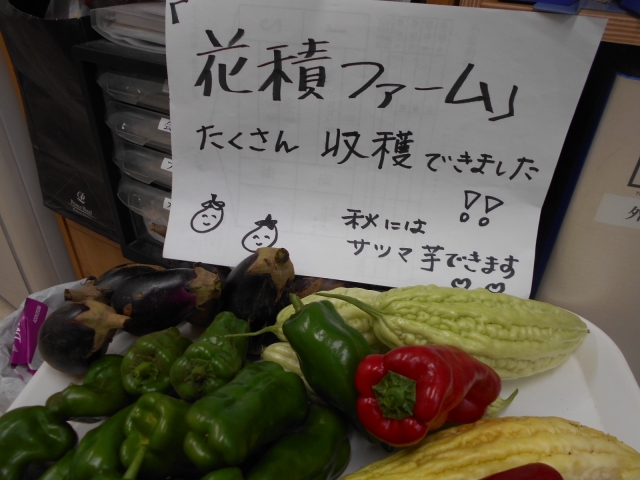 「花積ファーム」
たくさん 収穫できました
!!
秋には
サツマ芋できます
外